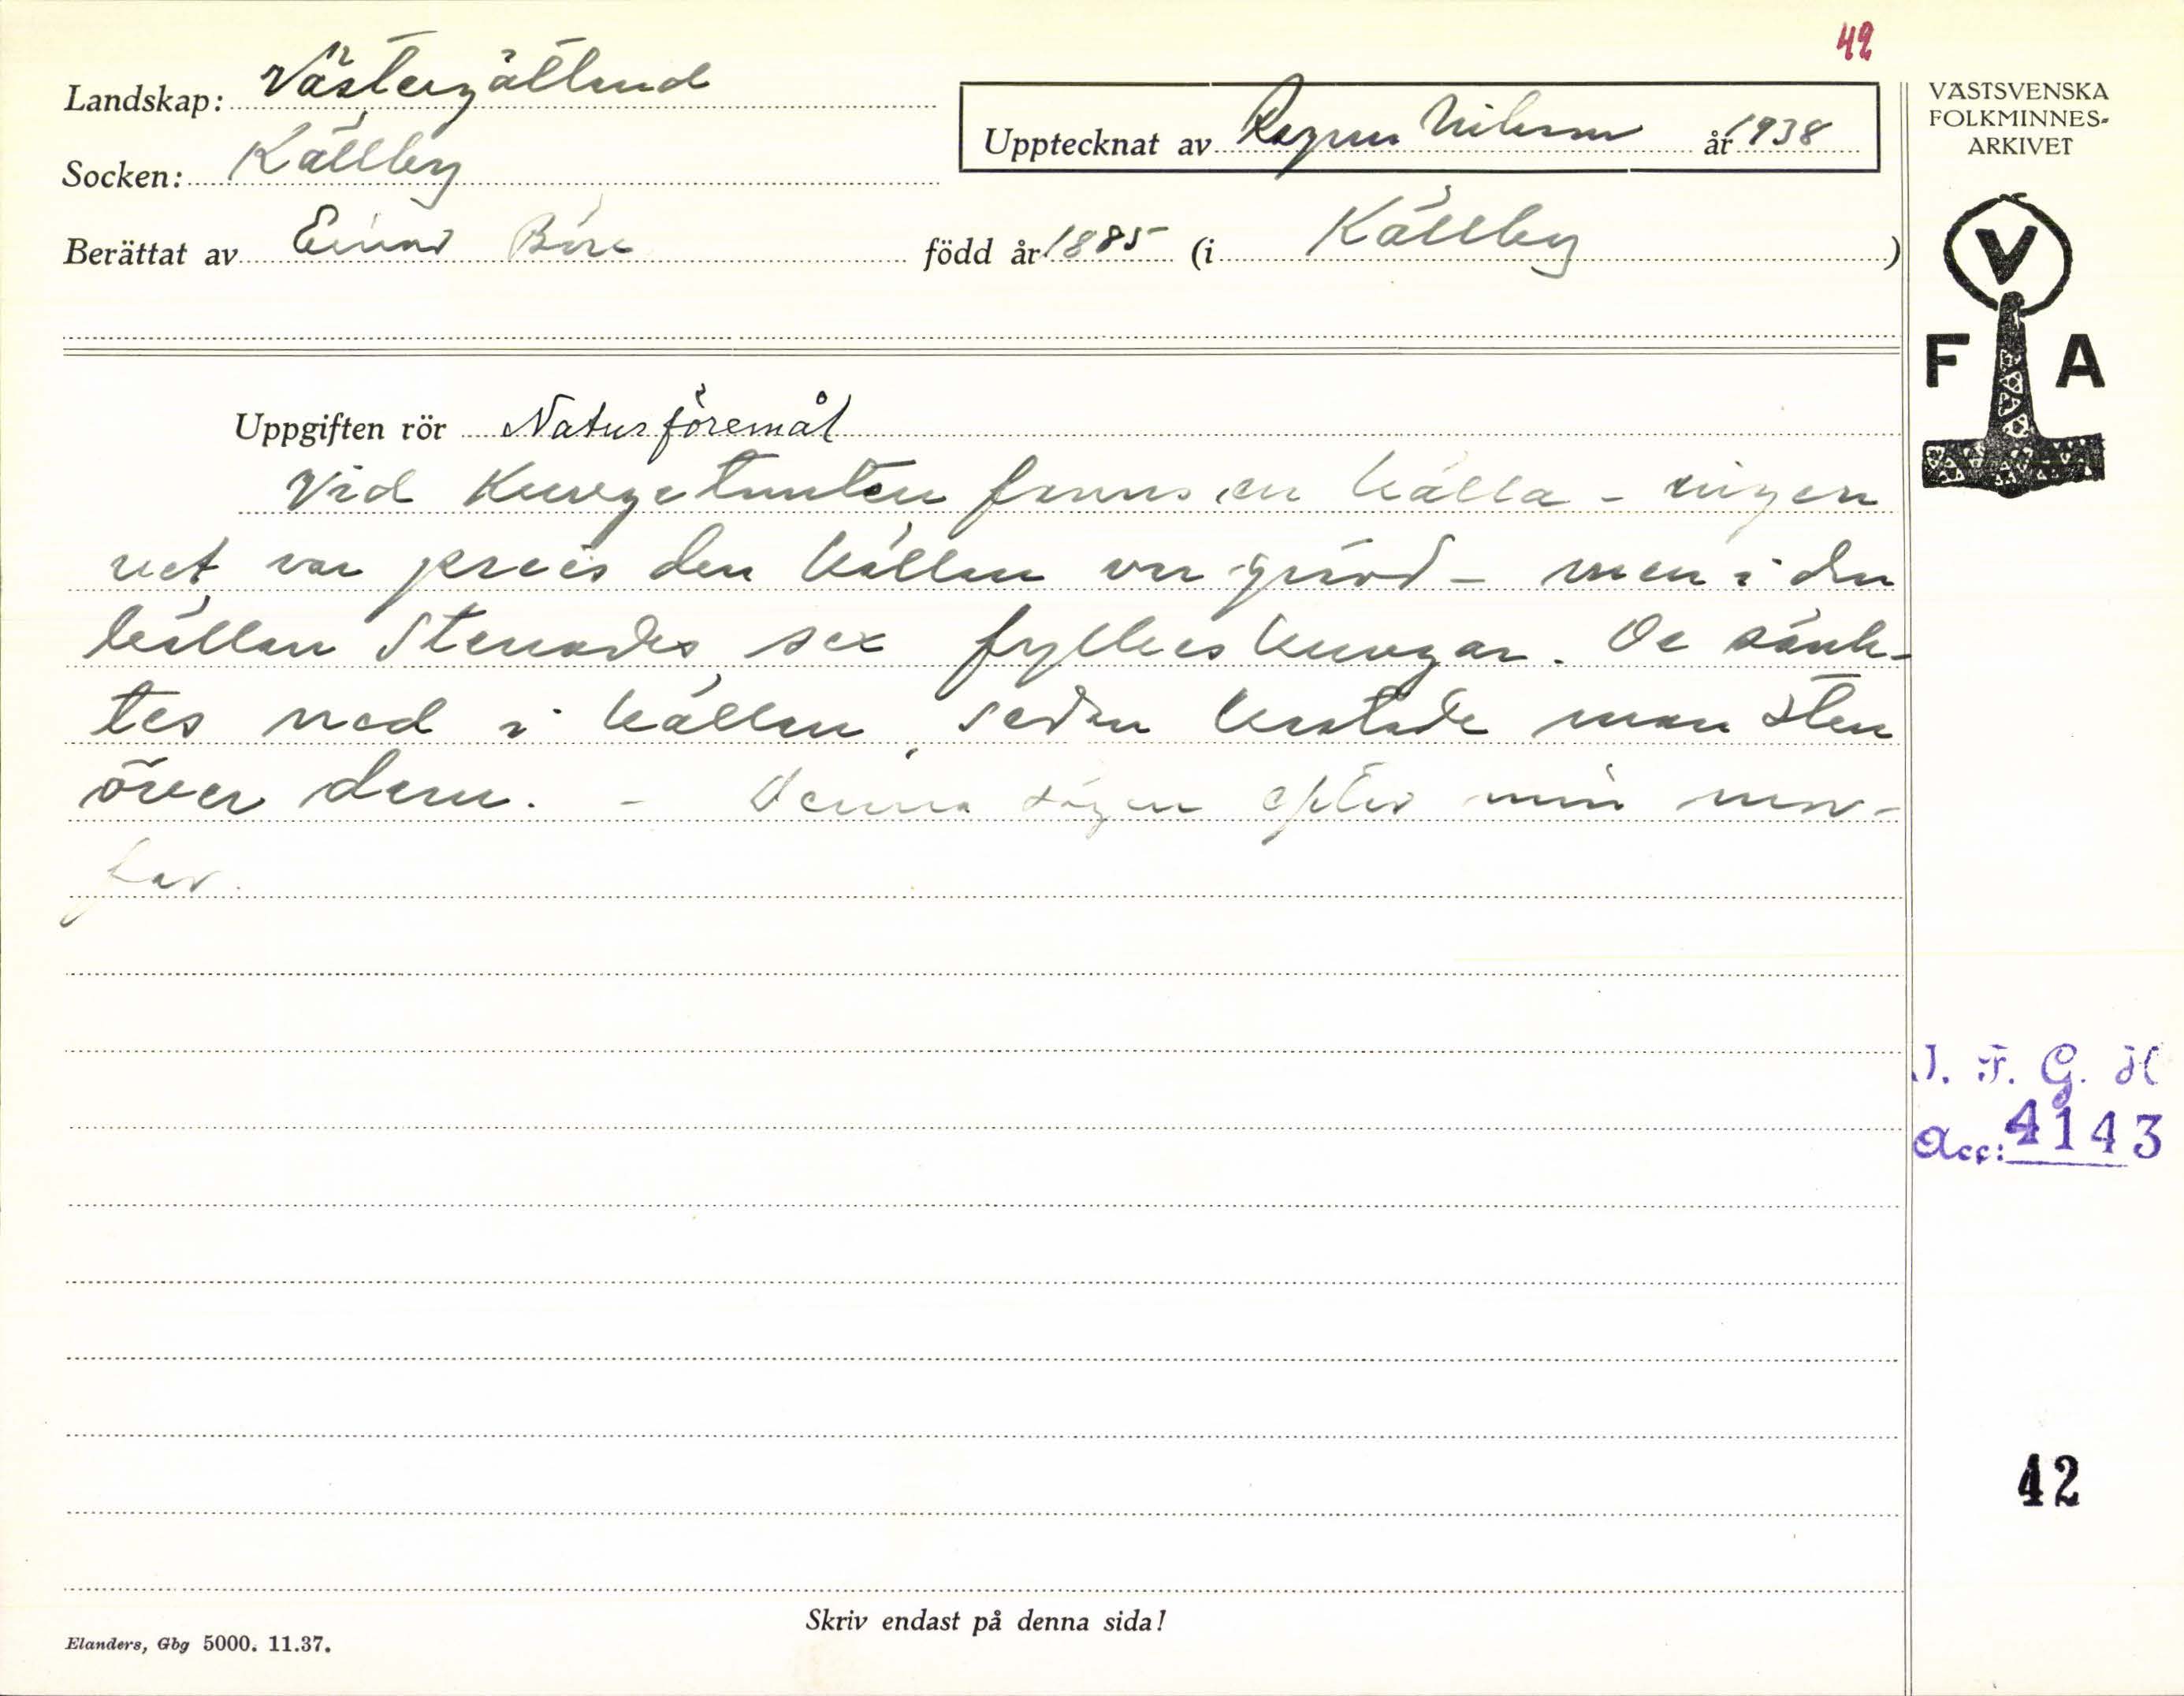 42
Landskap: Västergötland
Upptecknat av Ragnar Nilsson år 1938
Socken: Källby
Berättat av Einar född år 1885 (i Källby)
VÄSTSVENSKA
FOLKMINNES-
ARKIVET
V
F A
Uppgiften rör Naturföremål
Vid Kungstomten fanns en källa - ingen
vet var precis den källan var - men i den
källan stenades sex fylkeskungar. De sänk-
tes ned i källan, sedan kastade man sten
över dem. - Denna sägen efter min mor-
far.
I. F. G. H
Acc: 4143
42
Skriv endast på denna sida!
Elanders, Gbg 5000. 11.37.